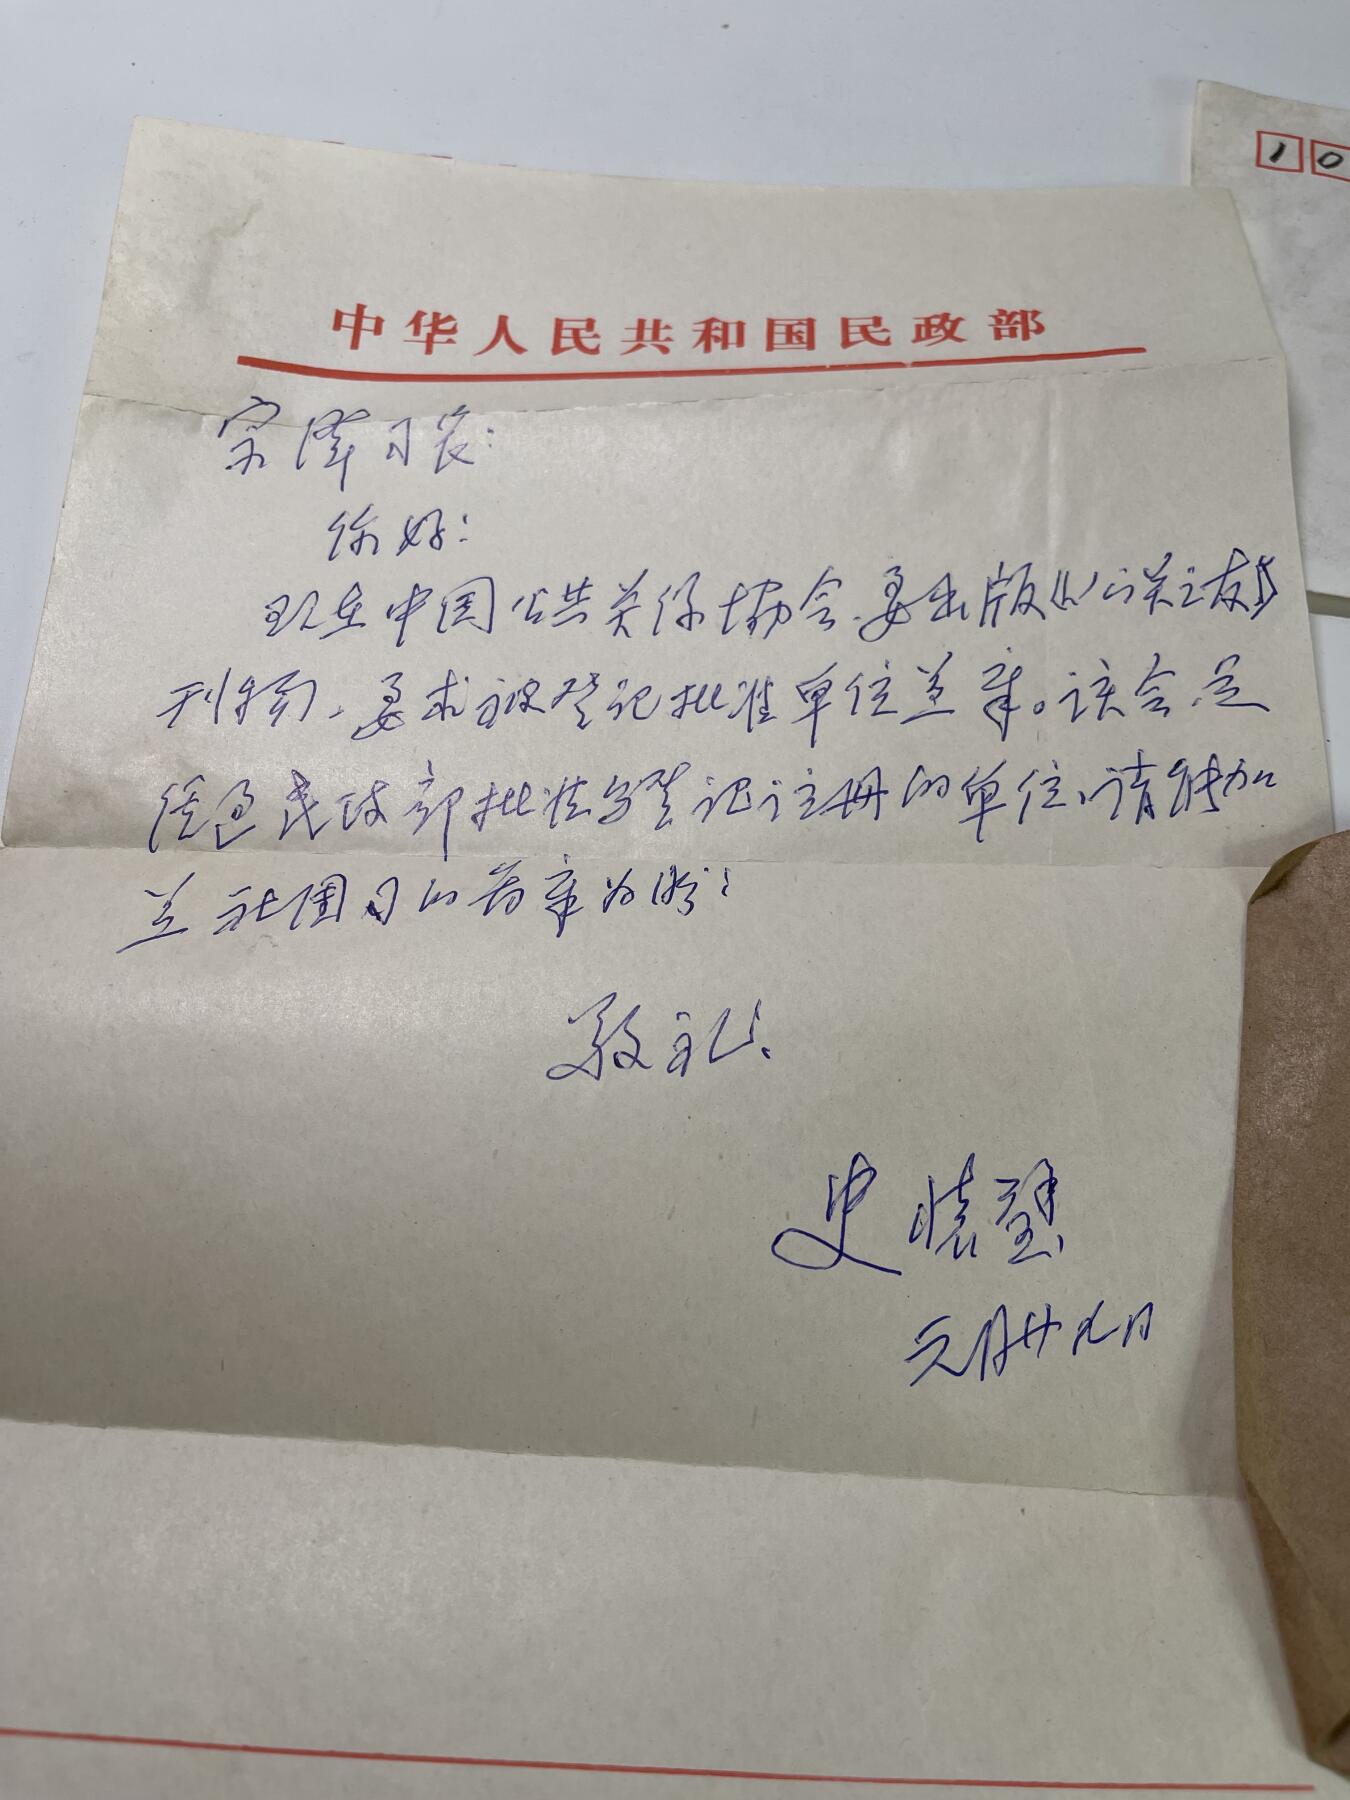 10
中华人民共和国民政部
宋泽司长:
你好:
现在中国公共关系协会要出版《公关之友》
刊物、要求被登记批准单位盖章。该会是
经过民政部批准登记注册的单位、请能加
盖社团司的为盼:
敬礼、
史怀璧
元月廿九日